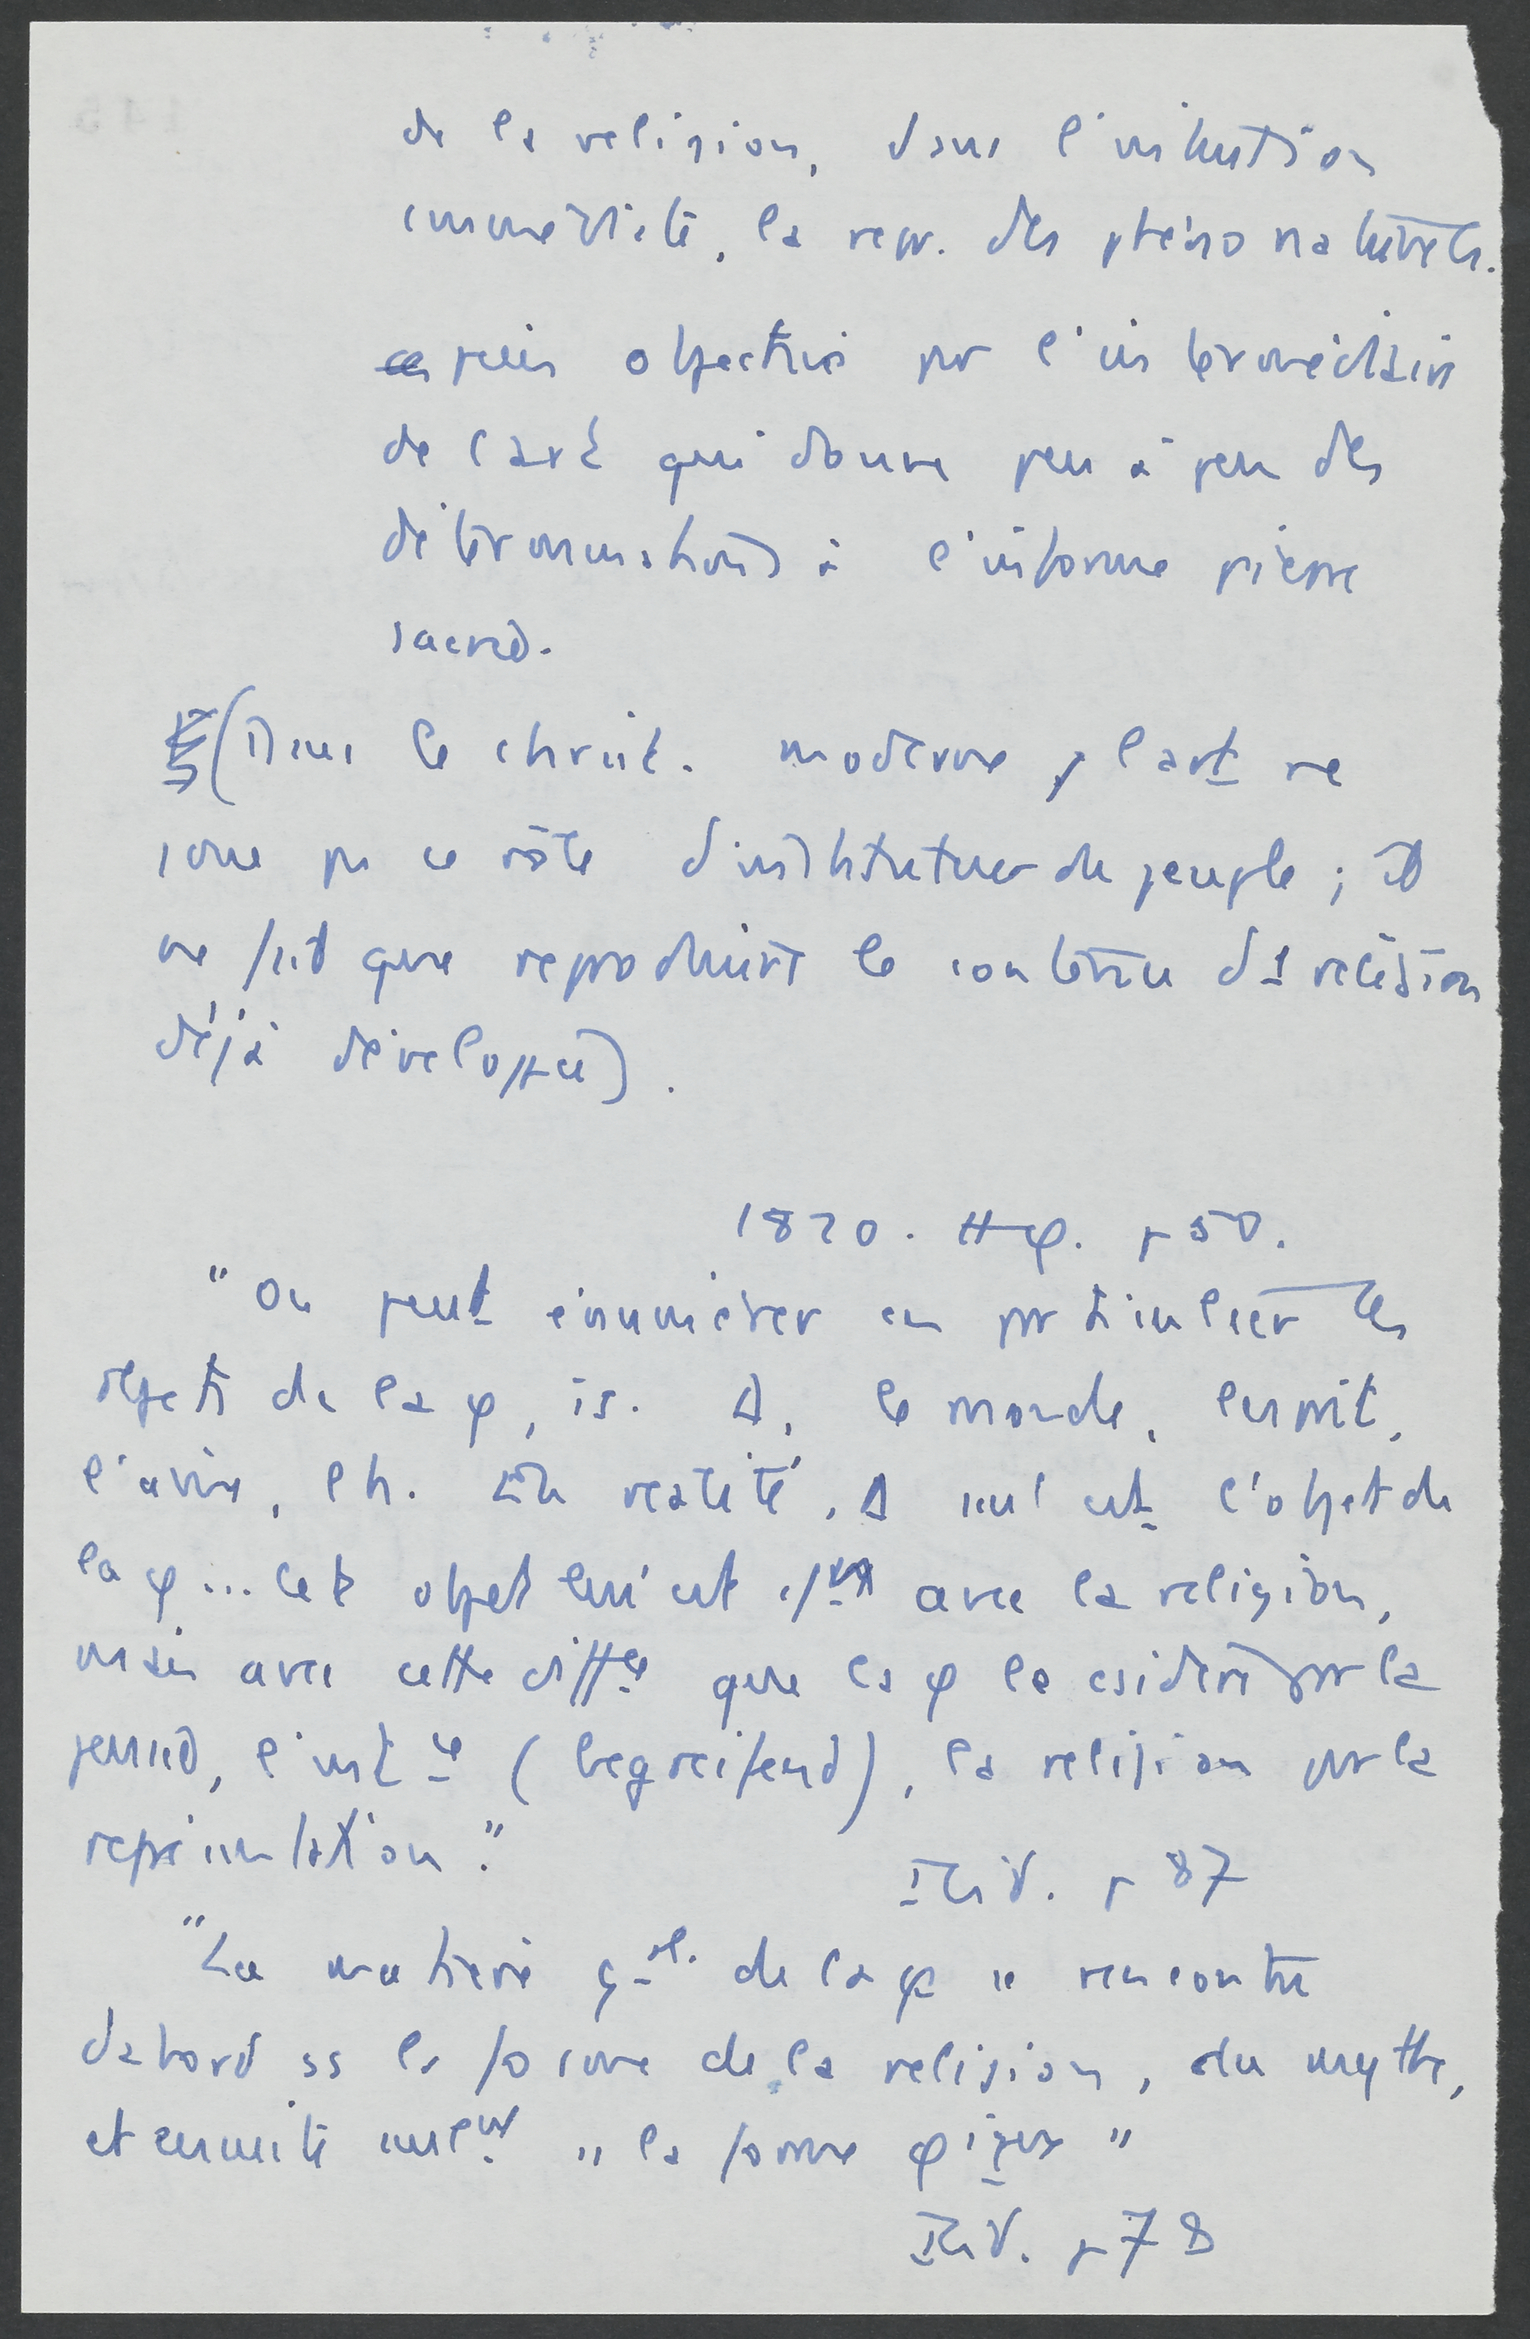 de la religion, dans l'intuition
immédiate, la repr. des phéno naturels.
puis objectivé par l'intermédiaire
de l'art qui donne peu à peu des
déterminations à l'informe pierre
sacrée.
(Dans le christ. moderne, l'art ne
joue pas ce rôle d'instituteur du peuple ; il
ne fait que reproduire le contenu d la religion
déjà développée).
1820. Hφ. p 50.
"On peut énumérer en particulier les
objets de la φ, is. Δ, le monde, l'esprit,
l'âme, l'h. En réalité, Δ seul est l'objet de
la φ... Cet objet lui est avec la religion,
mais avec cette diffce que la φ le csidère par la
pensée, l'intce (begreifend), la religion par la
représentation."
Ibid. p 87
"La matière gale. de la φ se rencontre
d'abord ss la forme de la religion, du mythe,
et ensuite seult. ss la forme φique"
Ibid. p 78